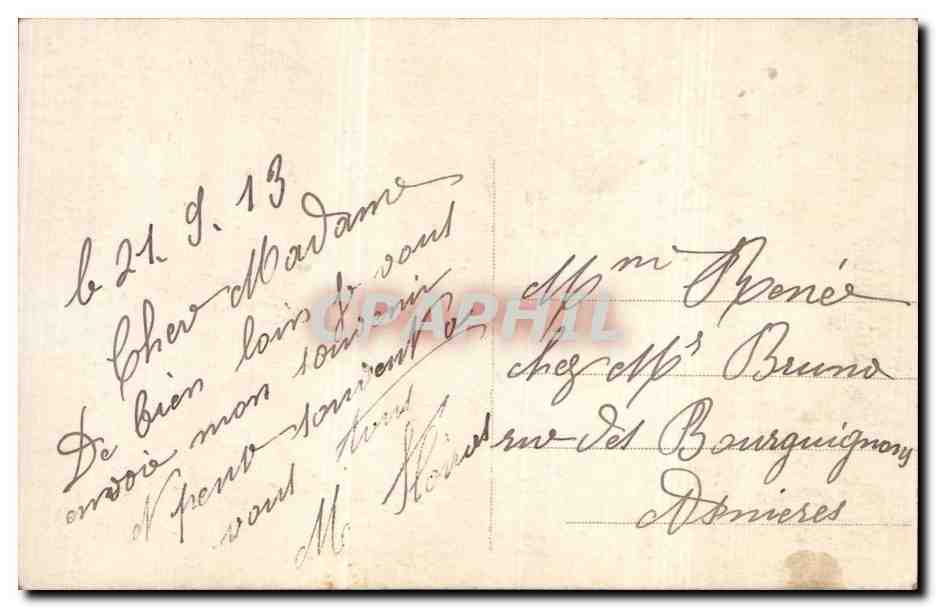 le 21. 9. 13
Cher Madame
De bien loin je vous
envoie mon souvenir
pense souvent a
vous tous
M.
Mme Renée
chez Mr Bruno
rue des Bourguignons
Asnieres
CPAPHIL